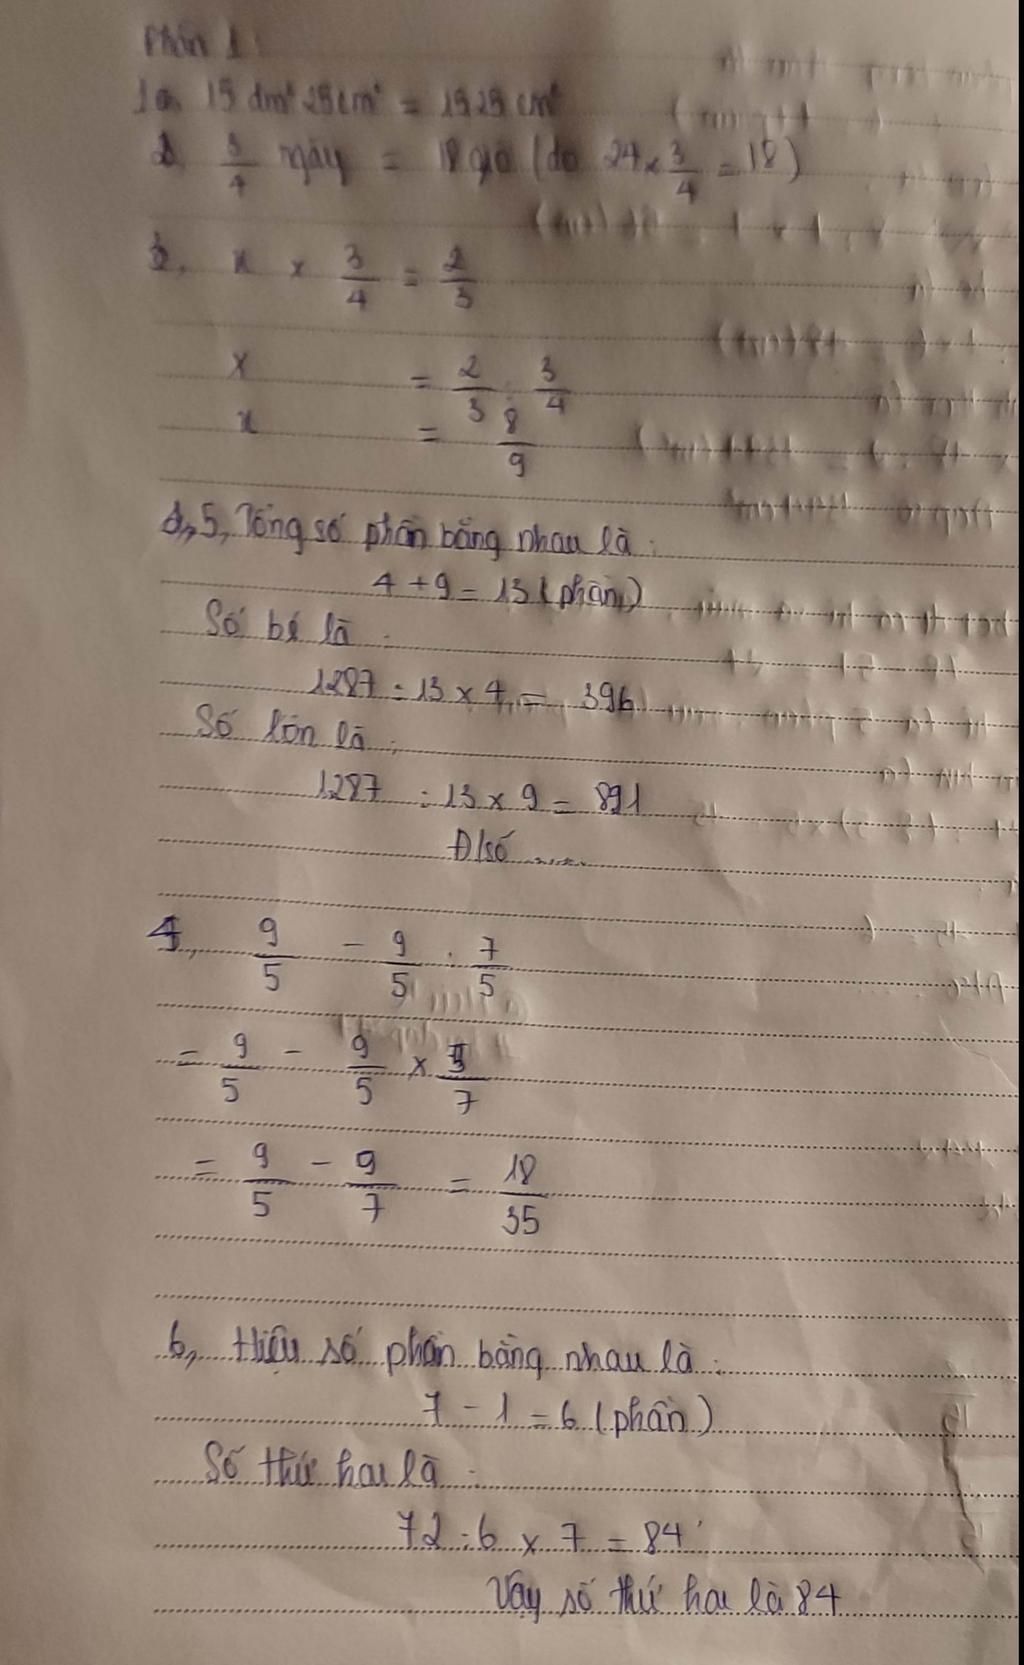 Phần 1:
1a. 15 dm² 25 cm² = 1525 cm²
2. 3/4 ngày = 18 giờ (do 24 x 3/4 = 18)
3, x x 3/4 = 2/3
x = 2/3 : 3/4
x = 8/9
5, Tổng số phần bằng nhau là :
4 + 9 = 13 (phần)
Số bé là :
1287 : 13 x 4 = 396
Số lớn là :
1287 : 13 x 9 = 891
Đ/số ........
4, 9/5 - 9/5 : 7/5
= 9/5 - 9/5 x 5/7
= 9/5 - 9/7 = 18/35
6, Hiệu số phần bằng nhau là :
7 - 1 = 6 (phần)
Số thứ hai là :
72 : 6 x 7 = 84
Vậy số thứ hai là 84